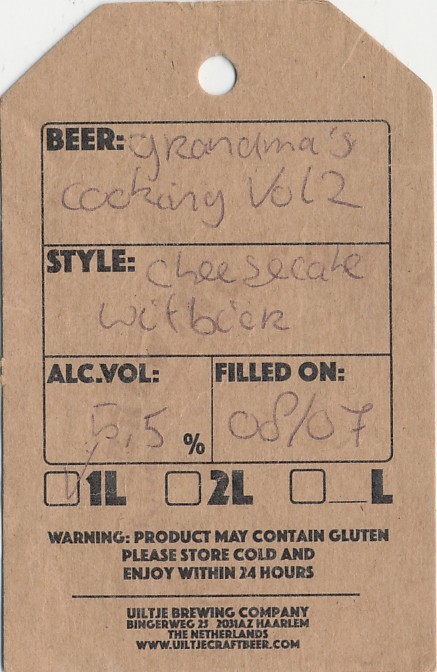 BEER: grandma's
cooking Vol 2
STYLE: cheesecake
witbier
ALC.VOL: FILLED ON:
5,5 % 08/07
1L 2L __L
WARNING: PRODUCT MAY CONTAIN GLUTEN
PLEASE STORE COLD AND
ENJOY WITHIN 24 HOURS
UILTJE BREWING COMPANY
BINGERWEG 25 2031AZ HAARLEM
THE NETHERLANDS
WWW.UILTJECRAFTBEER.COM